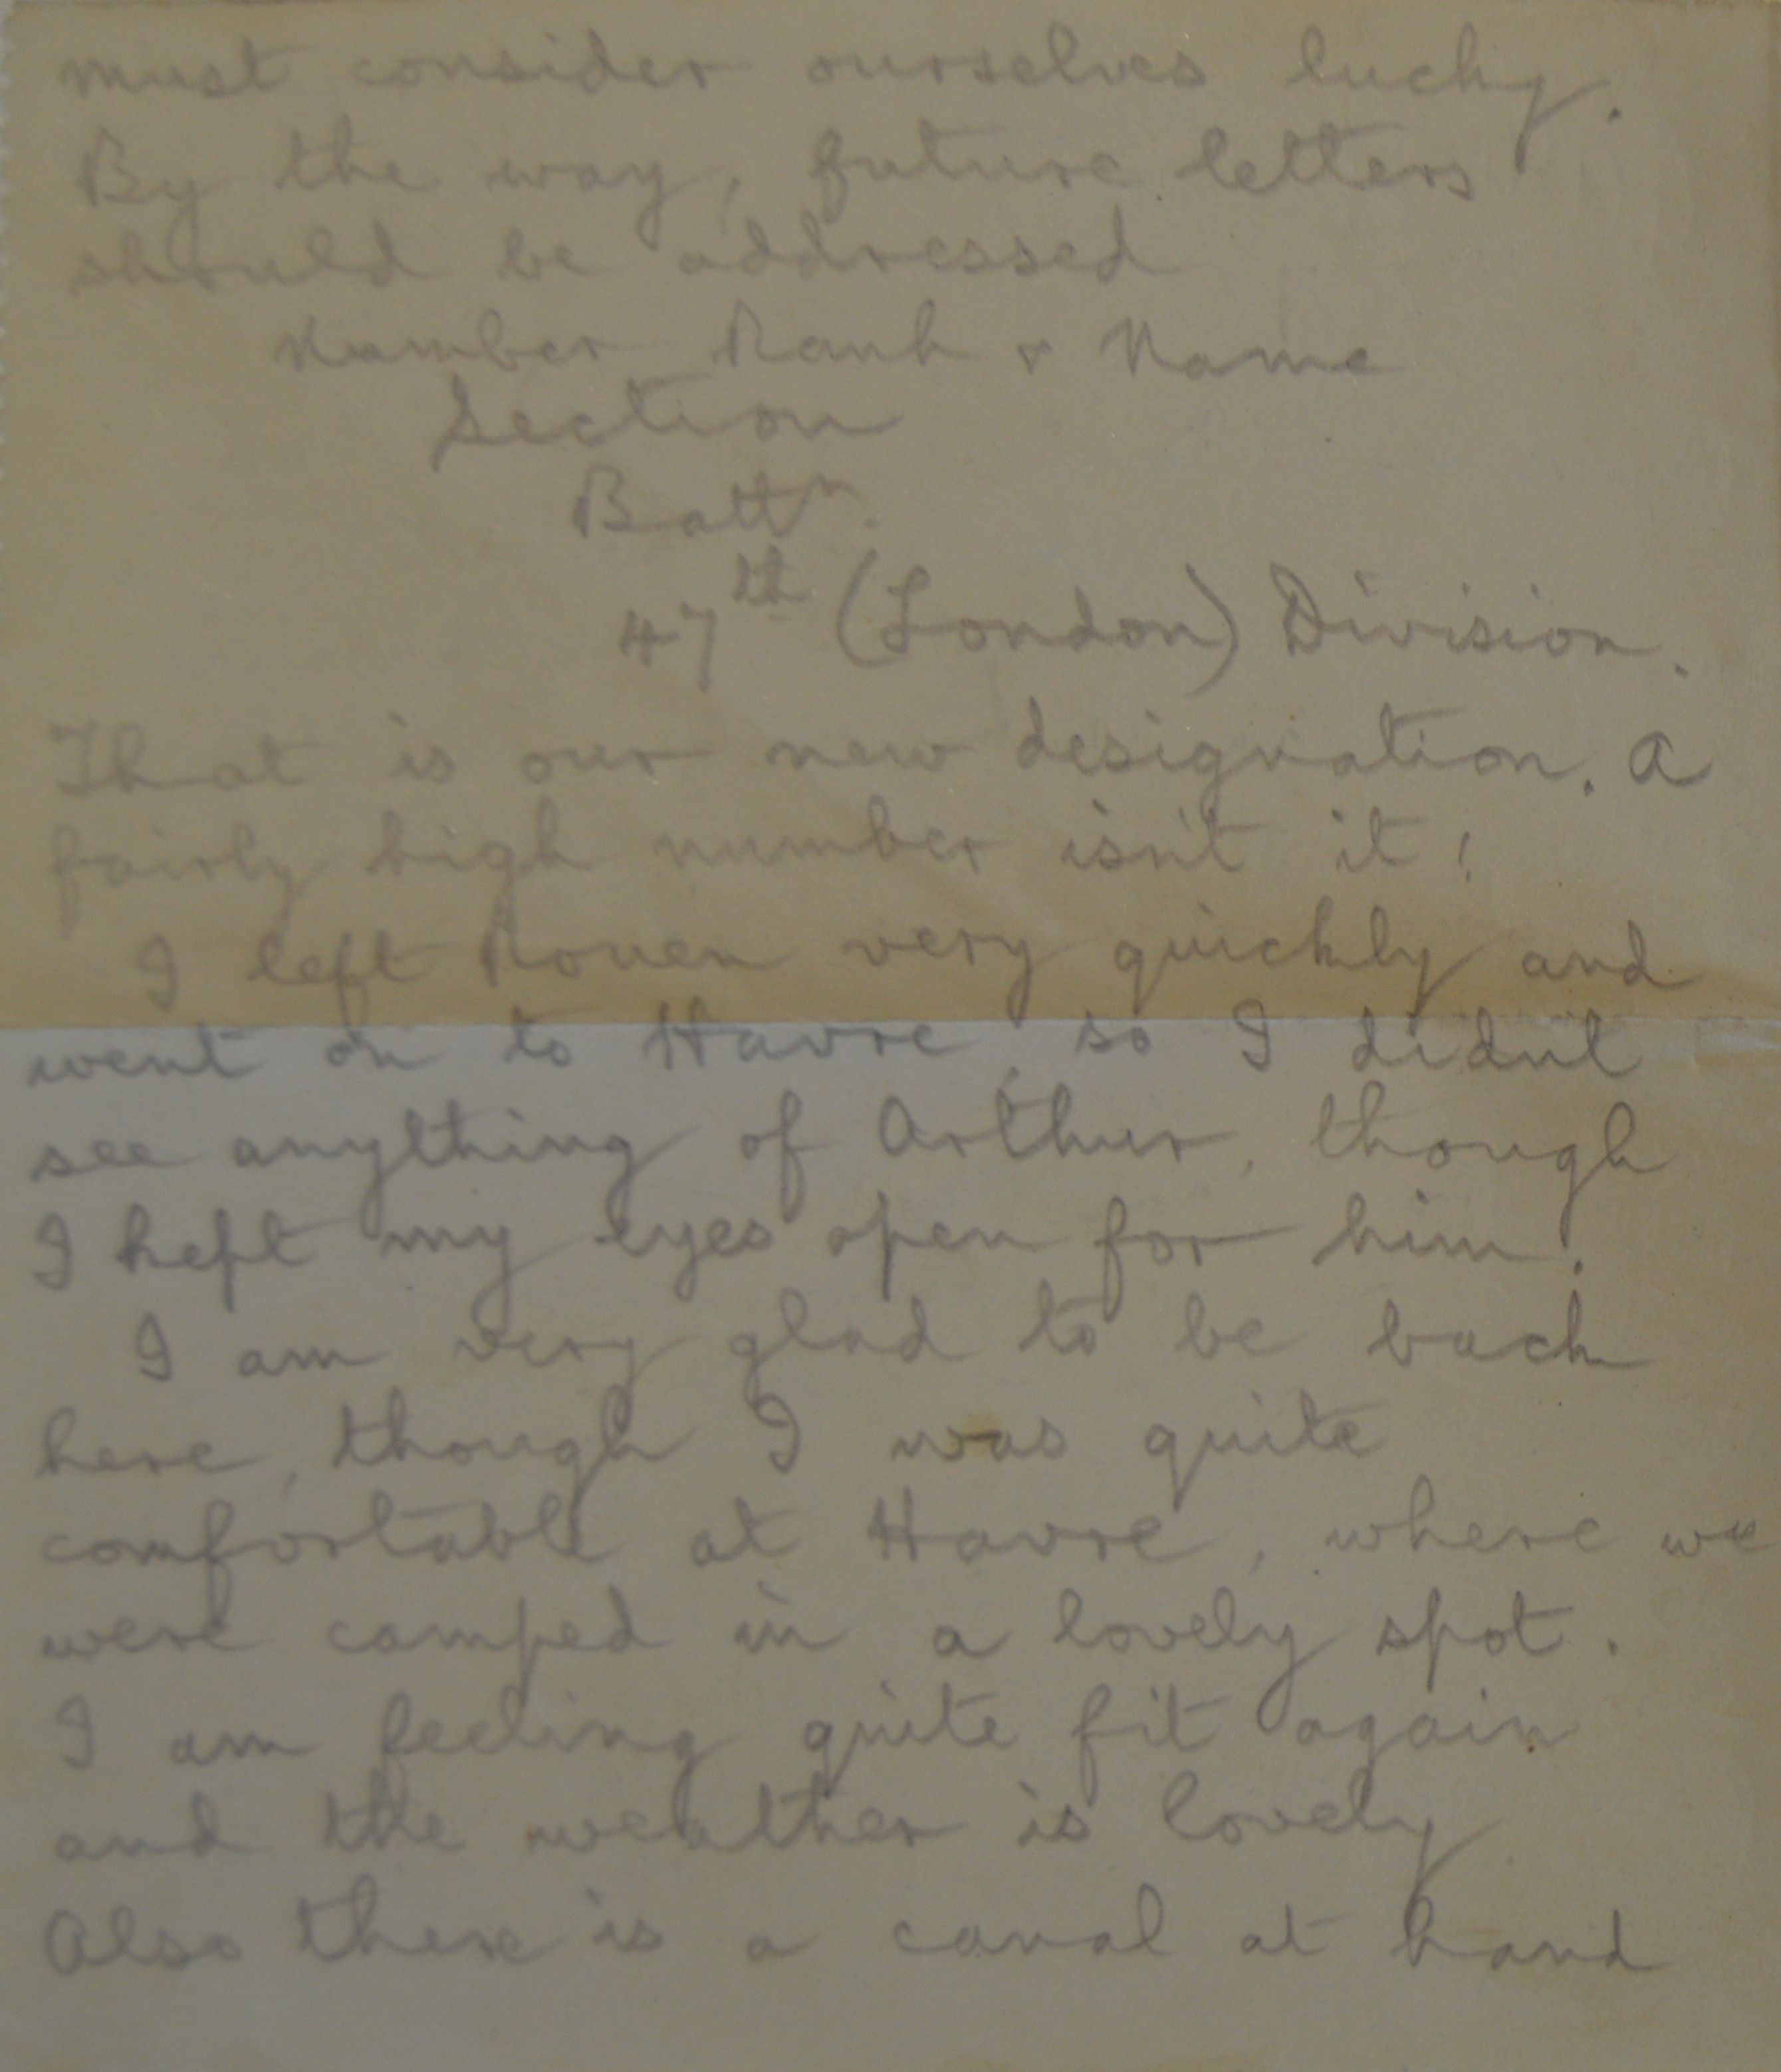 must consider ourselves lucky.
By the way, future letters
should be addressed
Number Rank & Name
Section
Battn.
47th (London) Division.
That is our new designation. A
fairly high number isn't it!
I left Rouen very quickly and
went on to Havre, so I didnt
see anything of Arthur, though
I kept my eyes open for him.
I am very glad to be back
here, though I was quite
comfortable at Havre, where we
were camped in a lovely spot.
I am feeling quite fit again
and the weather is lovely
Also there is a canal at hand